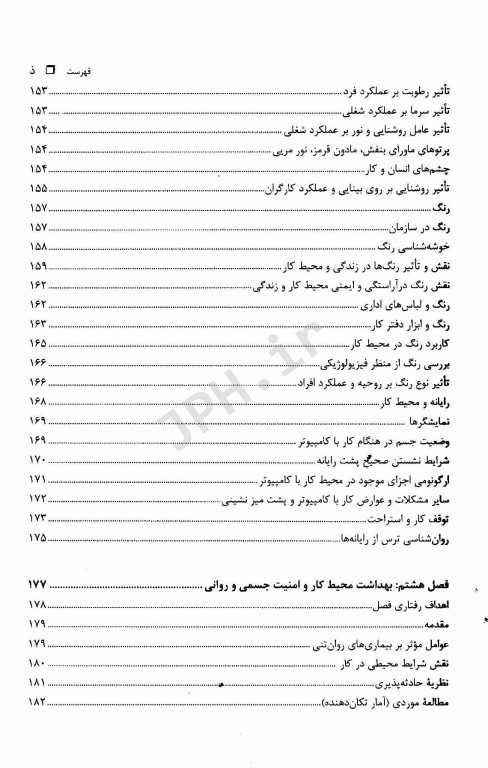 فهرست ❒ ذ
تأثیر رطوبت بر عملکرد فرد ۱۵۳
تأثیر سرما بر عملکرد شغلی ۱۵۳
تأثیر عامل روشنایی و نور بر عملکرد شغلی ۱۵۴
پرتوهای ماورای بنفش، مادون قرمز، نور مریی ۱۵۴
چشم‌های انسان و کار ۱۵۴
تأثیر روشنایی بر روی بینایی و عملکرد کارگران ۱۵۵
رنگ ۱۵۷
رنگ در سازمان ۱۵۷
خوشه‌شناسی رنگ ۱۵۸
نقش و تأثیر رنگ‌ها در زندگی و محیط کار ۱۵۹
نقش رنگ درآراستگی و ایمنی محیط کار و زندگی ۱۶۲
رنگ و لباس‌های اداری ۱۶۲
رنگ و ابزار دفتر کار ۱۶۳
کاربرد رنگ در محیط کار ۱۶۵
بررسی رنگ از منظر فیزیولوژیکی ۱۶۶
تأثیر نوع رنگ بر روحیه و عملکرد افراد ۱۶۶
رایانه و محیط کار ۱۶۸
نمایشگرها ۱۶۹
وضعیت جسم در هنگام کار با کامپیوتر ۱۶۹
شرایط نشستن صحیح پشت رایانه ۱۷۰
ارگونومی اجزای موجود در محیط کار با کامپیوتر ۱۷۱
سایر مشکلات و عوارض کار با کامپیوتر و پشت میز نشینی ۱۷۲
توقف کار و استراحت ۱۷۳
روان‌شناسی ترس از رایانه‌ها ۱۷۵
فصل هشتم: بهداشت محیط کار و امنیت جسمی و روانی ۱۷۷
اهداف رفتاری فصل ۱۷۸
مقدمه ۱۷۹
عوامل مؤثر بر بیماری‌های روان‌تنی ۱۷۹
نقش شرایط محیطی در کار ۱۸۰
نظریهٔ حادثه‌پذیری ۱۸۱
مطالعهٔ موردی (آمار تکان‌دهنده) ۱۸۲
JPH.ir